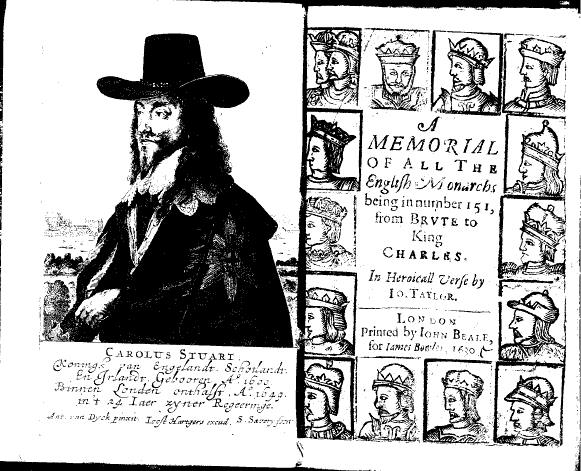 CAROLUS STUART
Koningh van Engelandt. Schotlandt.
en Irlandt. Gebooren A.º 1600
Binnen Londen onthalst. A.º 1649.
in't 24 Iaer zyner Regeeringe.
Ant. van Dyck pinxit. Ioost Hartgers excud. S. Savery fecit
A
MEMORIAL
OF ALL THE
English Monarchs
being in number 151,
from BRVTE to
King
CHARLES.
In Heroicall Verse by
IO. TAYLOR.
LONDON
Printed by IOHN BEALE,
for Iames Bowler. 1630